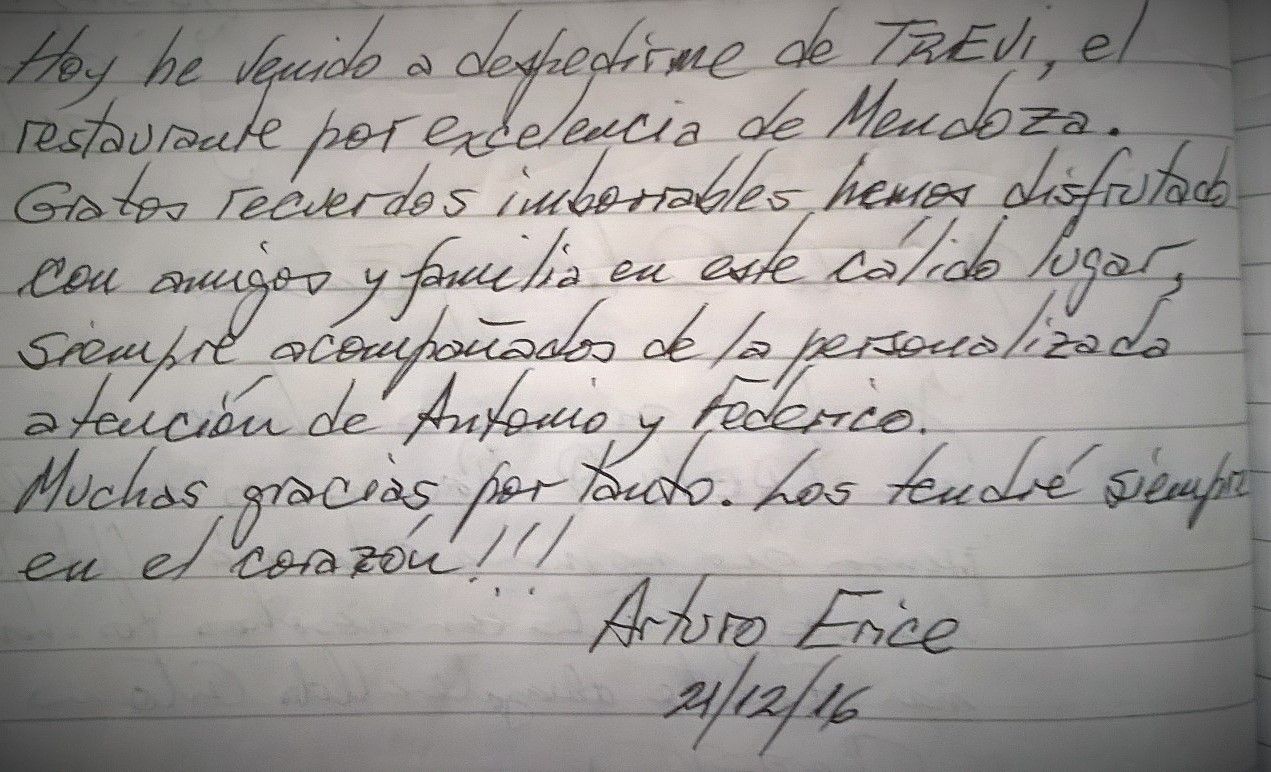 Hoy he venido a despedirme de TREVI, el
restaurante por excelencia de Mendoza.
Gratos recuerdos imborrables hemos disfrutado
con amigos y familia en este cálido lugar,
siempre acompañados de la personalizada
atención de Antonio y Federico.
Muchas gracias por tanto. Los tendré siempre
en el corazón!!!
Arturo Erice
21/12/16